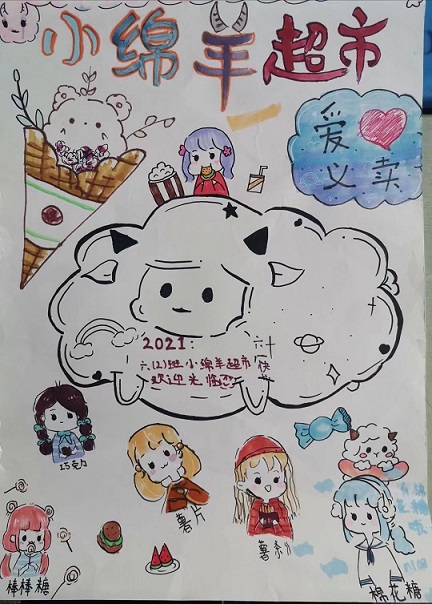 小绵羊超市
爱
义卖
2021:
六(2)班小绵羊超市
欢迎光临
六一
快
巧克力
薯片
薯条
棒棒糖
棉花糖